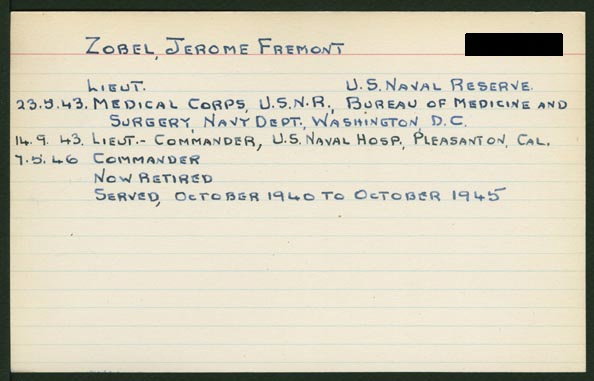 ZOBEL, JEROME FREMONT
LIEUT. U.S. NAVAL RESERVE.
23.9.43. MEDICAL CORPS, U.S.N.R., BUREAU OF MEDICINE AND
SURGERY, NAVY DEPT., WASHINGTON, D.C.
14.9.43. LIEUT.- COMMANDER, U.S. NAVAL HOSP., PLEASANTON, CAL.
7.5.46 COMMANDER
NOW RETIRED
SERVED, OCTOBER 1940 TO OCTOBER 1945